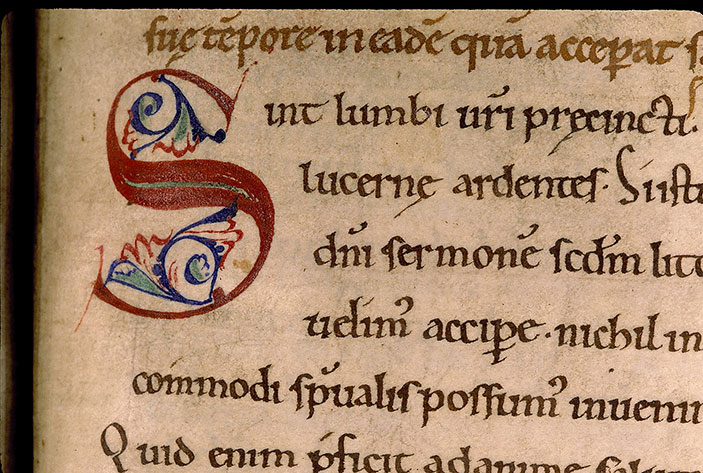 suę tēpore in eadē quā acceperat
Sint lumbi ur̄i pręcincti.
lucernę ardentes. Si iстu
dn̄i sermonē scd̄m litt
uelim᾽ accipe. nichil in
commodi sp̄ualis possum᾽ inueni
Quid enim p̄ficit ad animę